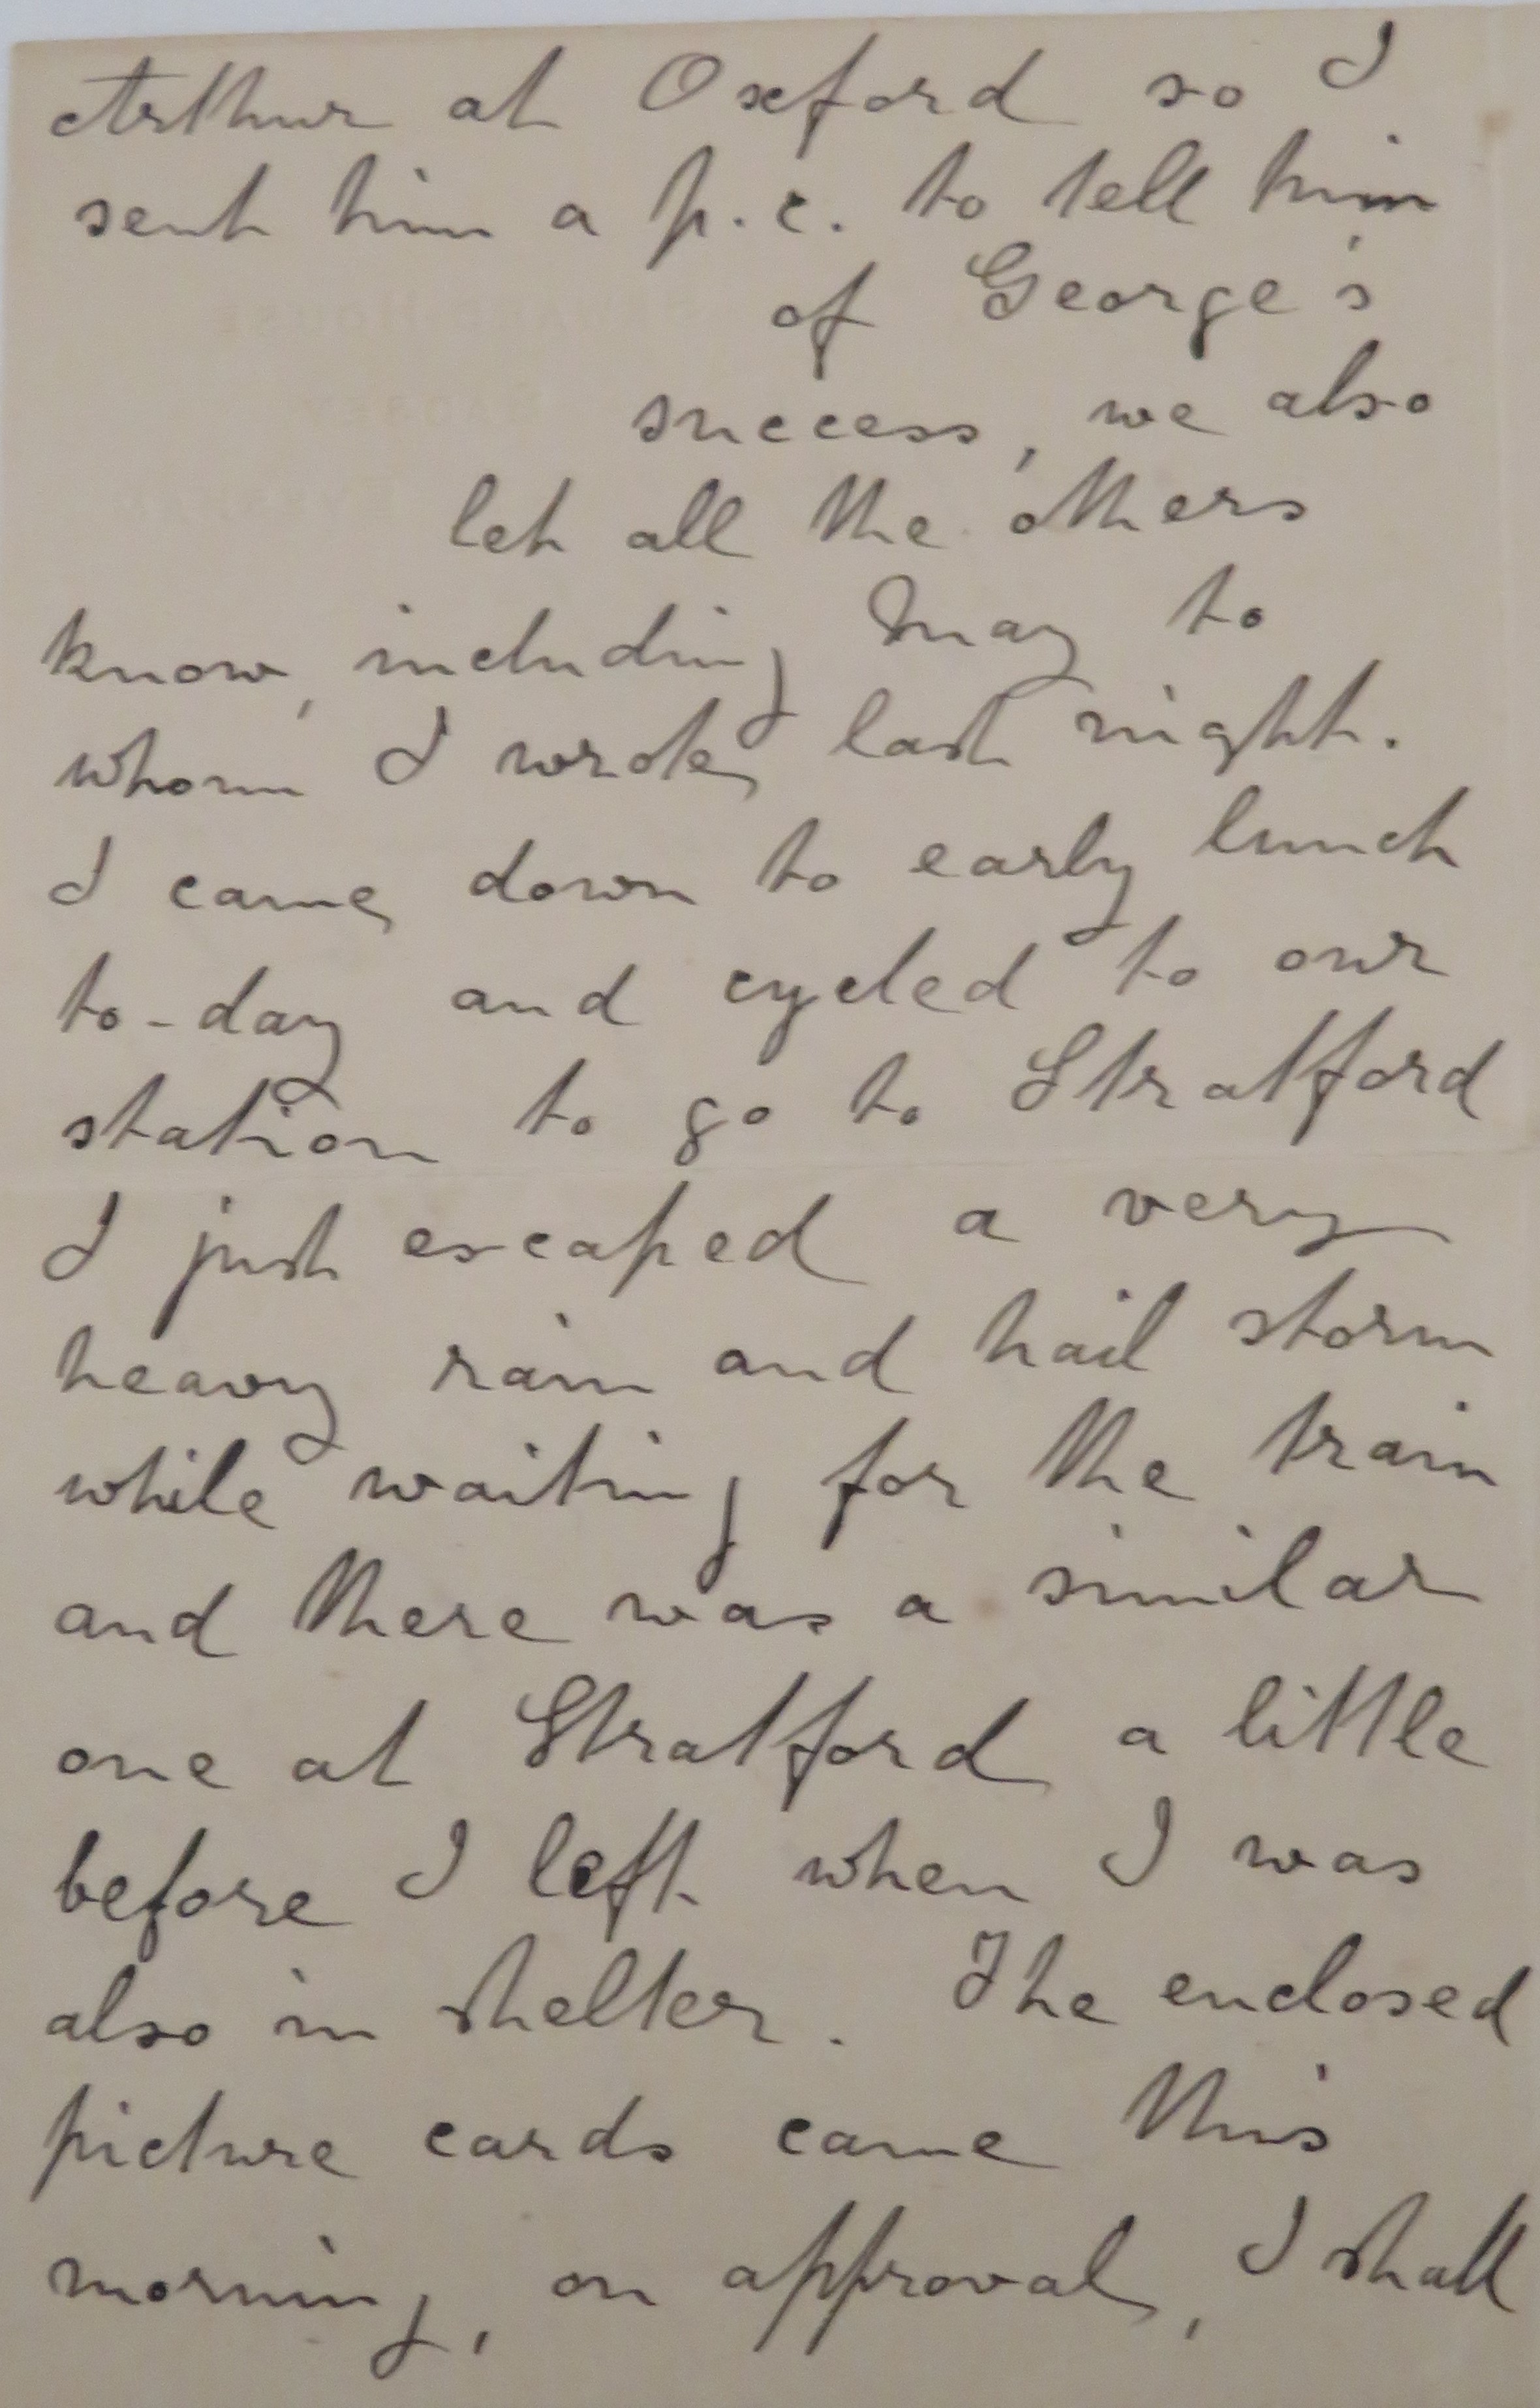 Arthur at Oxford so I
sent him a p.c. to tell him
of George's
success, we also
let all the others
know, including May to
whom I wrote last night.
I came down to early lunch
to-day and cycled to our
station to go to Stratford
I just escaped a very
heavy rain and hail storm
while waiting for the train
and there was a similar
one at Stratford a little
before I left when I was
also in shelter. The enclosed
picture cards came this
morning, on approval, I shall